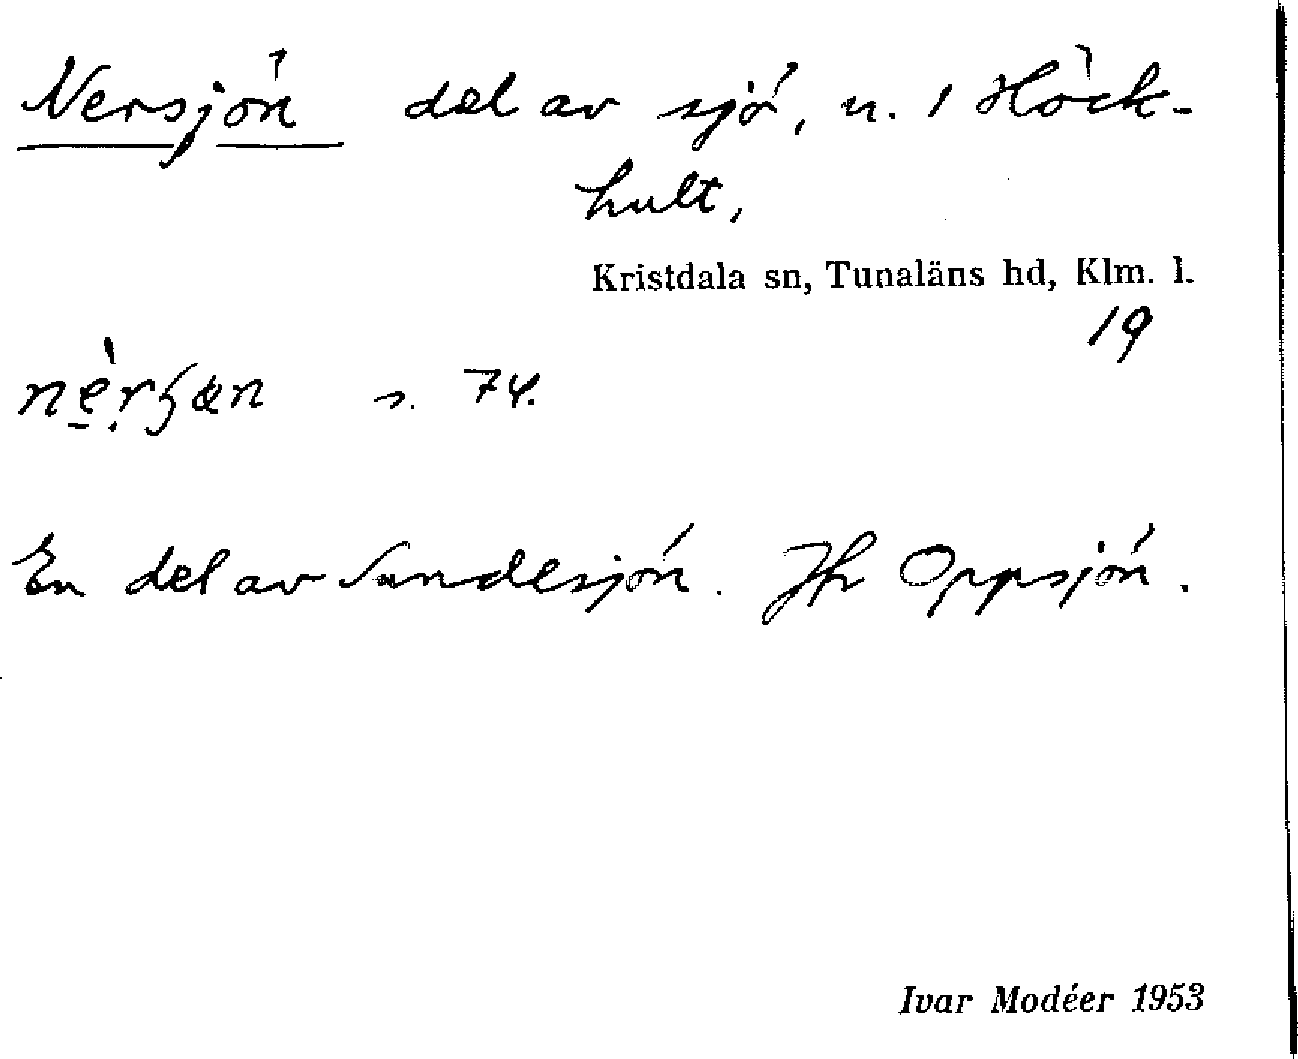 Nersjön del av sjö, u. 1 Höck-
hult,
Kristdala sn, Tunaläns hd, Klm. l.
19
s. 74.
En del av Sandesjön. Jfr Oppsjön.
Ivar Modéer 1953